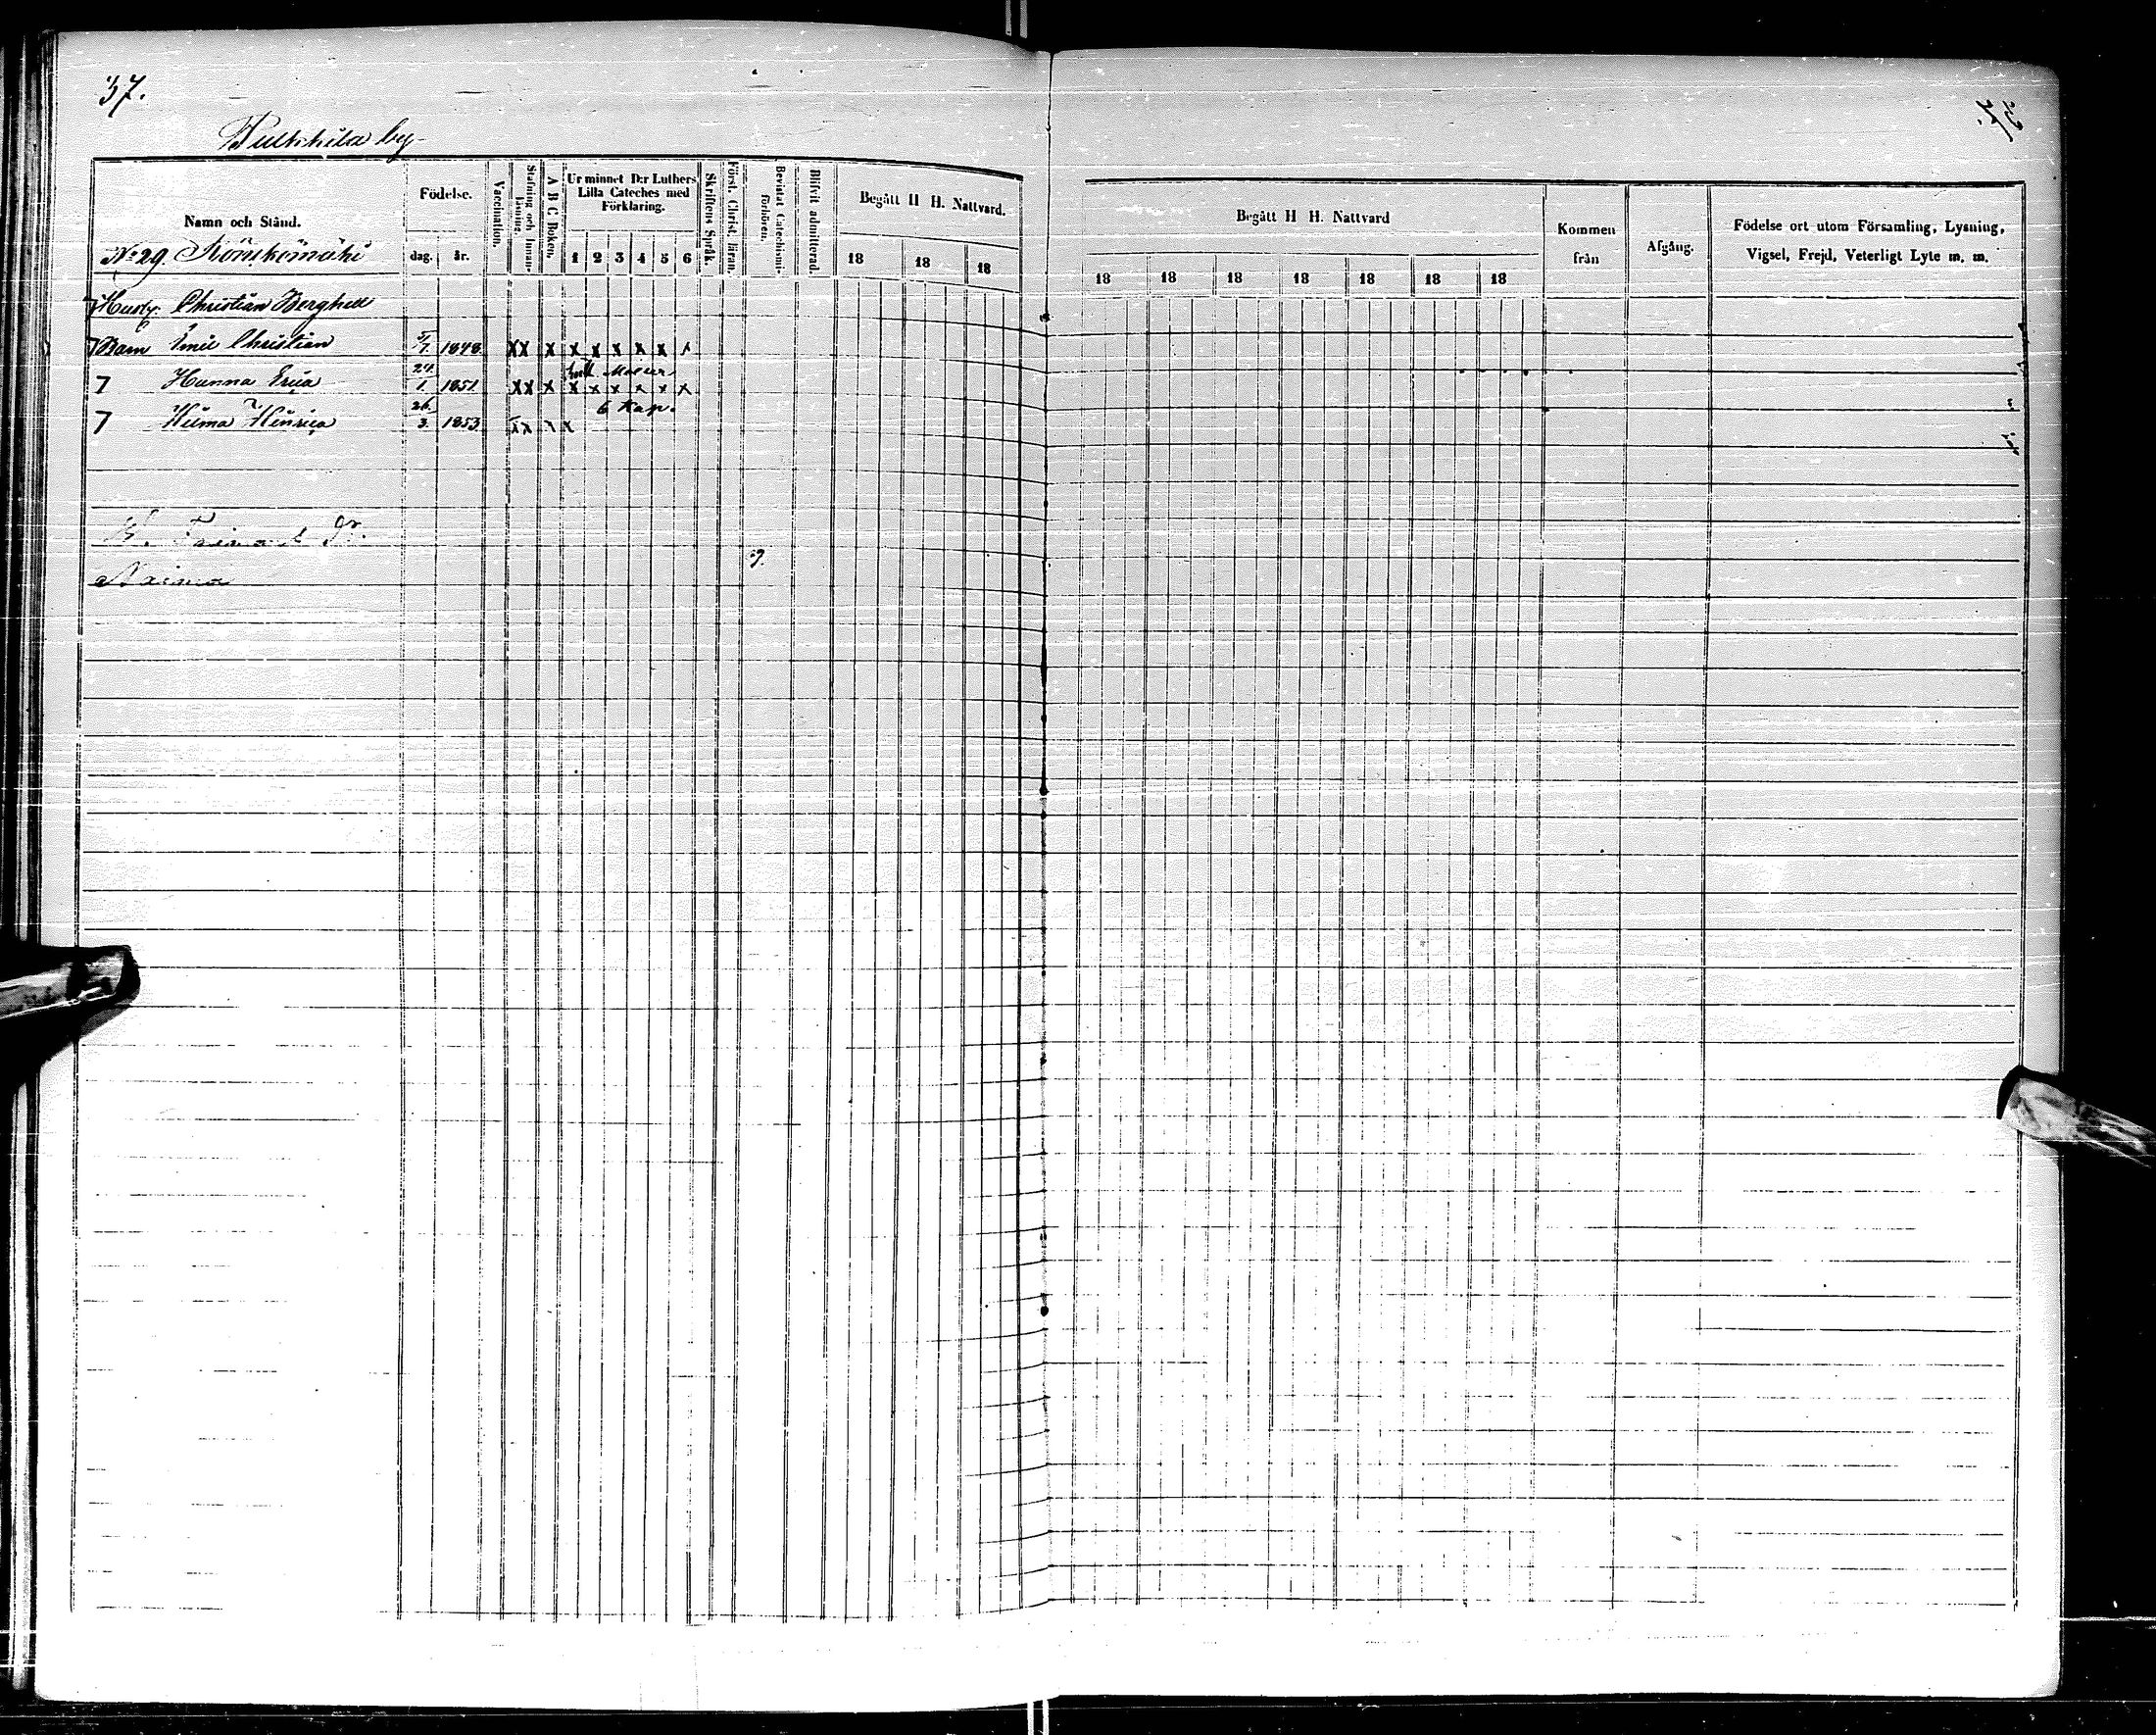 37.
Pulkkila by
Namn och Stånd.
Födelse.
dag. år.
Vaccination.
Stafning och Innanläsning.
A B C Boken.
Ur minnet D:r Luthers Lilla Cateches med Förklaring.
1 2 3 4 5 6
Skriftens Språk.
Först. Christ. läran.
Bevistat Catechismiförhören.
Blifvit admitterad.
Begått H H. Nattvard.
18 18 18
Begått H H. Nattvard
18 18 18 18 18 18 18
Kommen från
Afgång.
Födelse ort utom Församling, Lysning, Vigsel, Frejd, Veterligt Lyte m. m.
No 29.
Christian Berghell
Barn Emil Christian 5/7. 1848. x x x x x x x x x
7 Hanna Erica 24/1. 1851. x x x x x x x x x
6 Kap.
7 Hilma Hinrica 26./3. 1853 x x x x
Naima